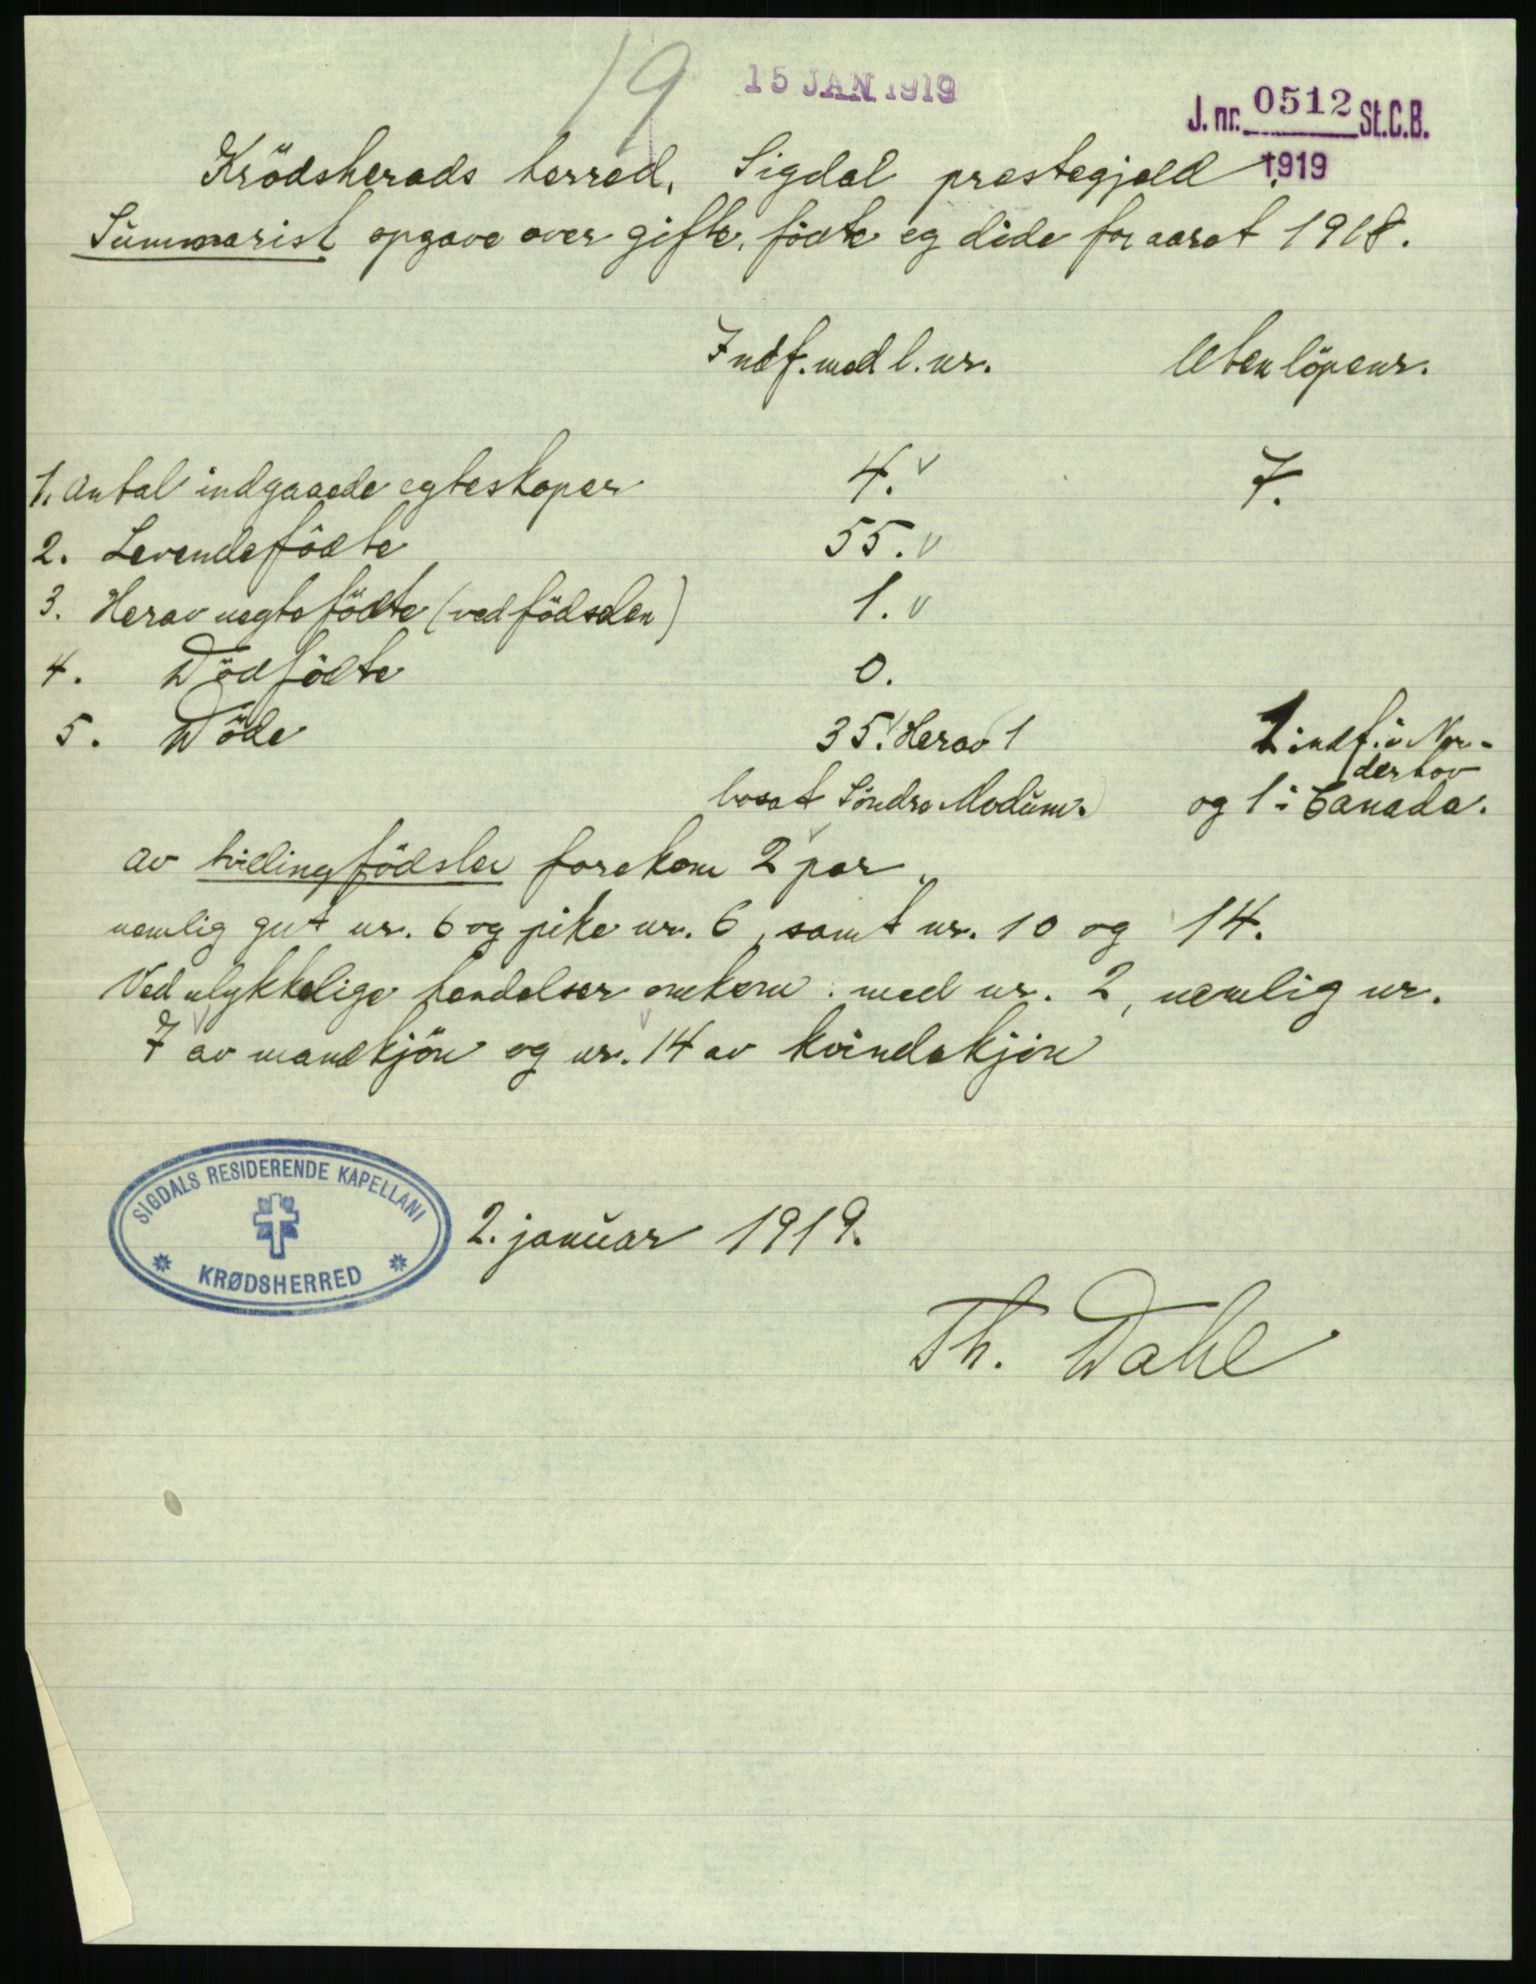 19
15 JAN 1919
J. nr. 0512 St.C.B.
1919
Krödsherads herred, Sigdal prestegjeld.
Summarisk opgave over gifte, födte og döde for aaret 1918.
Indf. med l. nr. Uten löpenr.
1. Antal indgaaede egteskaper 4. v 7.
2. Levendefödte 55. v
3. Herav uegte födte (ved födselen) 1. v
4. Dödfödte 0.
5. Döde 35. v Herav 1 1 indf. i Nor-
derhov
bosat Söndre Modum. og 1 i Canada.
av tvillingfödsler forekom 2 par,
nemlig gut nr. 6 og pike nr. 6, samt nr. 10 og 14.
Ved ulykkelige hendelser omkom: med nr. 2, nemlig nr.
7 av mandkjön og nr. 14 av kvindekjön
SIGDALS RESIDERENDE KAPELLANI
KRØDSHERRED
2. januar 1919.
Th. Dahl